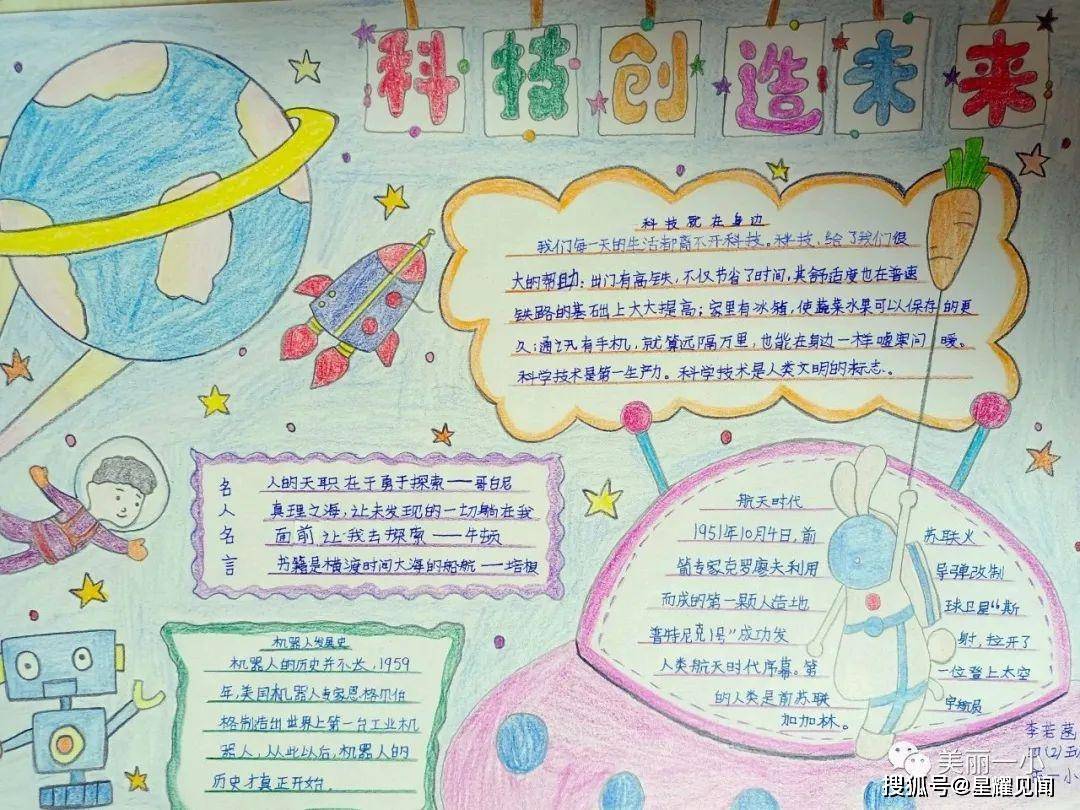 科技创造未来
科技就在身边
我们每一天的生活都离不开科技。科技、给了我们很
大的帮助：出门有高铁，不仅节省了时间，其舒适度也在普速
铁路的基础上大大提高；家里有冰箱，使蔬菜水果可以保存的更
久；通讯有手机，就算远隔万里，也能在身边一样嘘寒问暖。
科学技术是第一生产力。科学技术是人类文明的标志。
名人名言
人的天职在于勇于探索——哥白尼
真理之海，让未发现的一切躺在我
面前，让我去探索——牛顿
书籍是横渡时间大海的船航——培根
航天时代
1951年10月4日，前苏联火
箭专家克罗廖夫利用导弹改制
而成的第一颗人造地球卫星“斯
普特尼克1号”成功发射，拉开了
人类航天时代序幕。第一位登上太空
的人类是前苏联宇航员
加加林。
机器人发展史
机器人的历史并不长，1959
年，美国机器人专家恩格尔伯
格制造出世界上第一台工业机
器人，从此以后，机器人的
历史才真正开始。
李若菡
美丽一小
搜狐号@星耀见闻